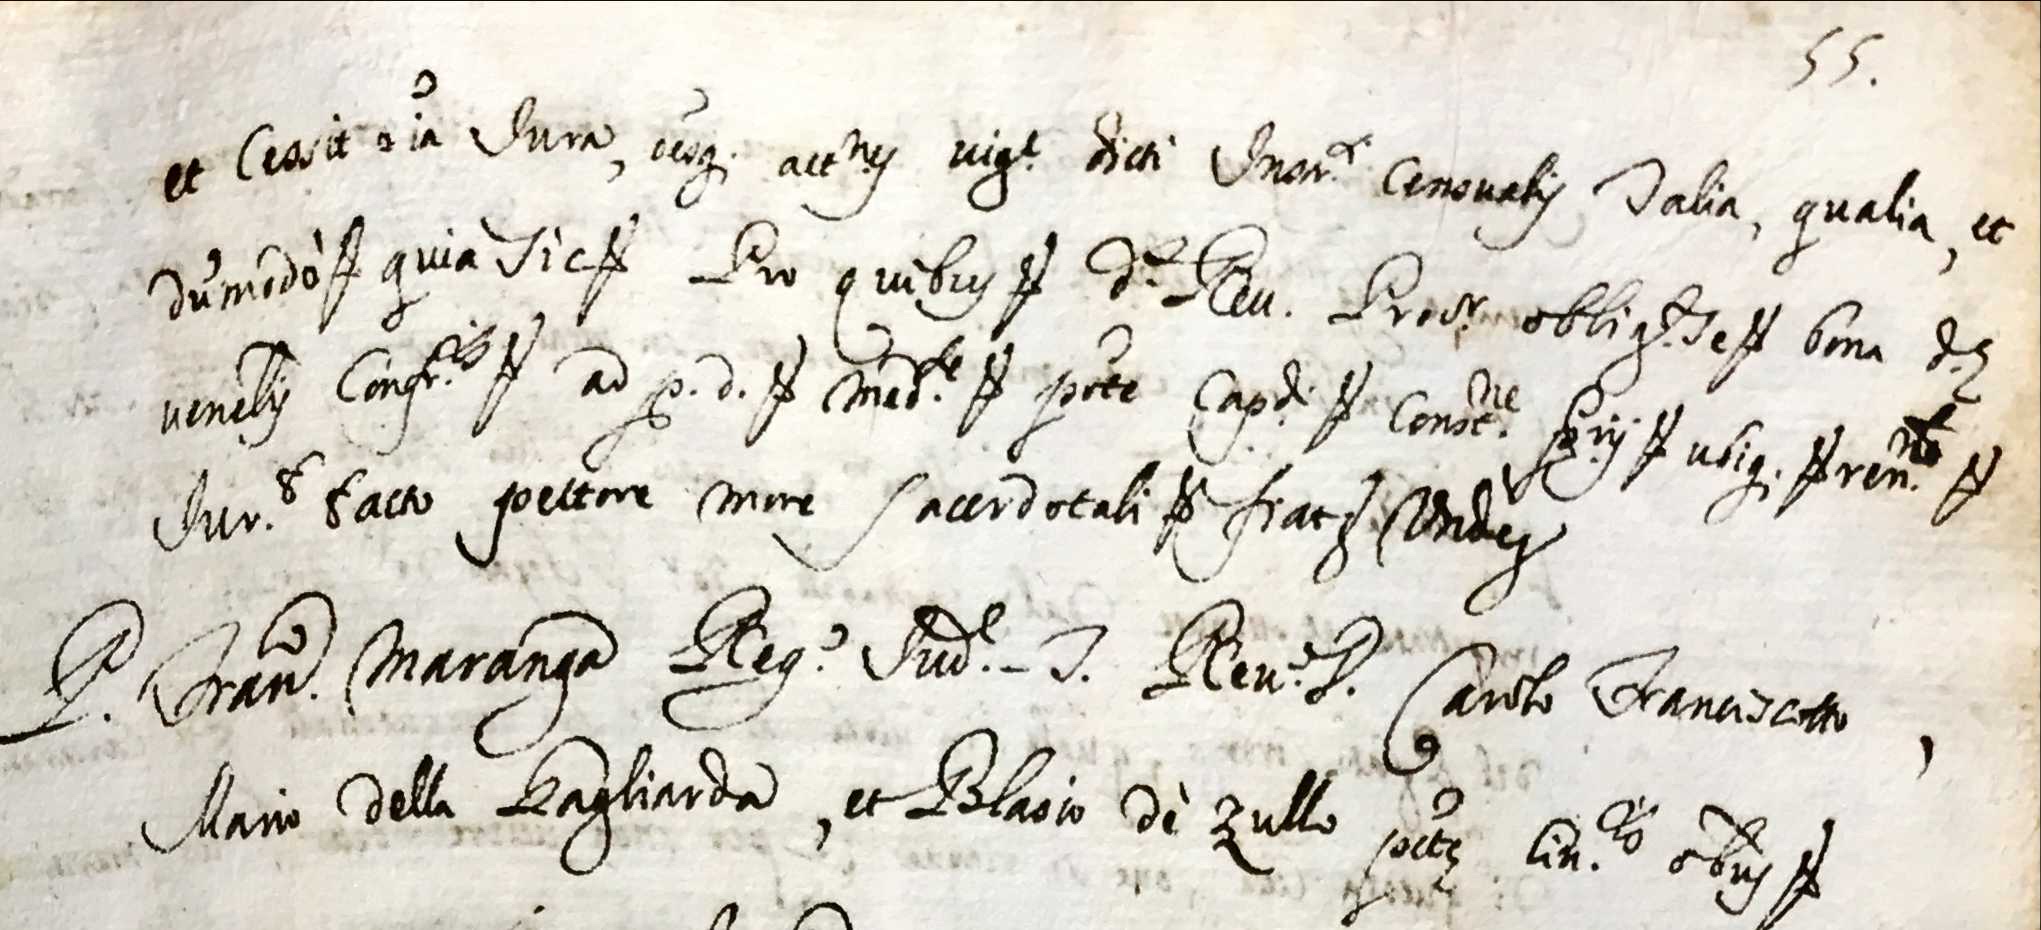 55.
et Cessit o'ia Jura, oesq. act.nes vig.e dicti Instr.ti Censualis Talia, qualia, et
dum̄odò quia sic Pro quibus d.s Reu. Procr. obblig.t se bona d.æ
venelis Congr.nis ad p. d. Med.te p̄rte Cap.di Const.ne p̄rij ubiq. ren.t
Jur.t tacto pectore more sacerdotali fiat Undes
P. Fran.co Maranga Reg.s Jud.x - T. Reu.s P. Carolo Franciscotto,
Mario della Gagliarda, et Blasio dè Zullo p̄ctz lin.to o'bus